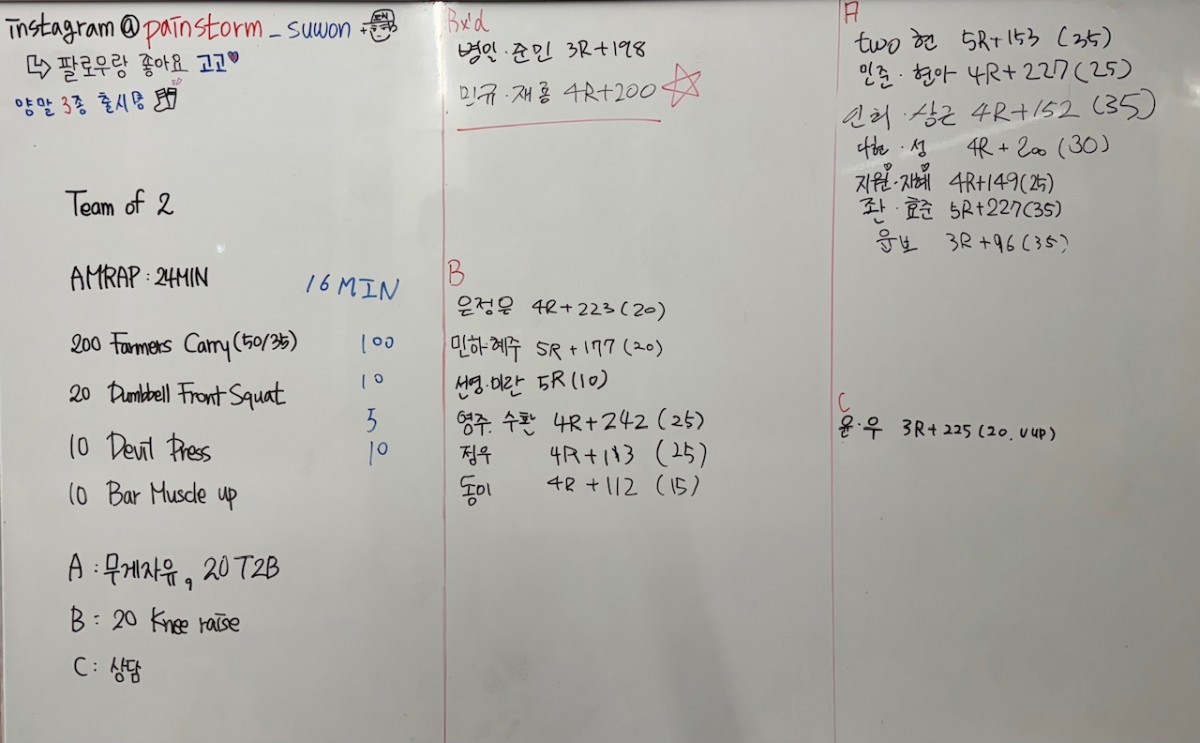 instagram@painstorm_suwon
팔로우랑 좋아요 고고
양말 3종 출시중
Team of 2
AMRAP : 24MIN 16MIN
200 Farmers Carry (50/35) 100
20 Dumbbell Front Squat 10
5
10 Devil Press 10
10 Bar Muscle up
A : 무게자유, 20 T2B
B : 20 Knee raise
C : 상담
Rx'd
병일·준민 3R+198
민규·재롱 4R+200
B
은정은 4R+223(20)
민하·혜주 5R+177(20)
선영·미란 5R(10)
영주·수환 4R+242(25)
정우 4R+113(25)
동이 4R+112(15)
A
two현 5R+153(35)
민준·현아 4R+227(25)
인희·상근 4R+152(35)
다현·성 4R+200(30)
지원·지혜 4R+149(25)
효준 5R+227(35)
3R+96(35)
C
윤·우 3R+225(20. V up)